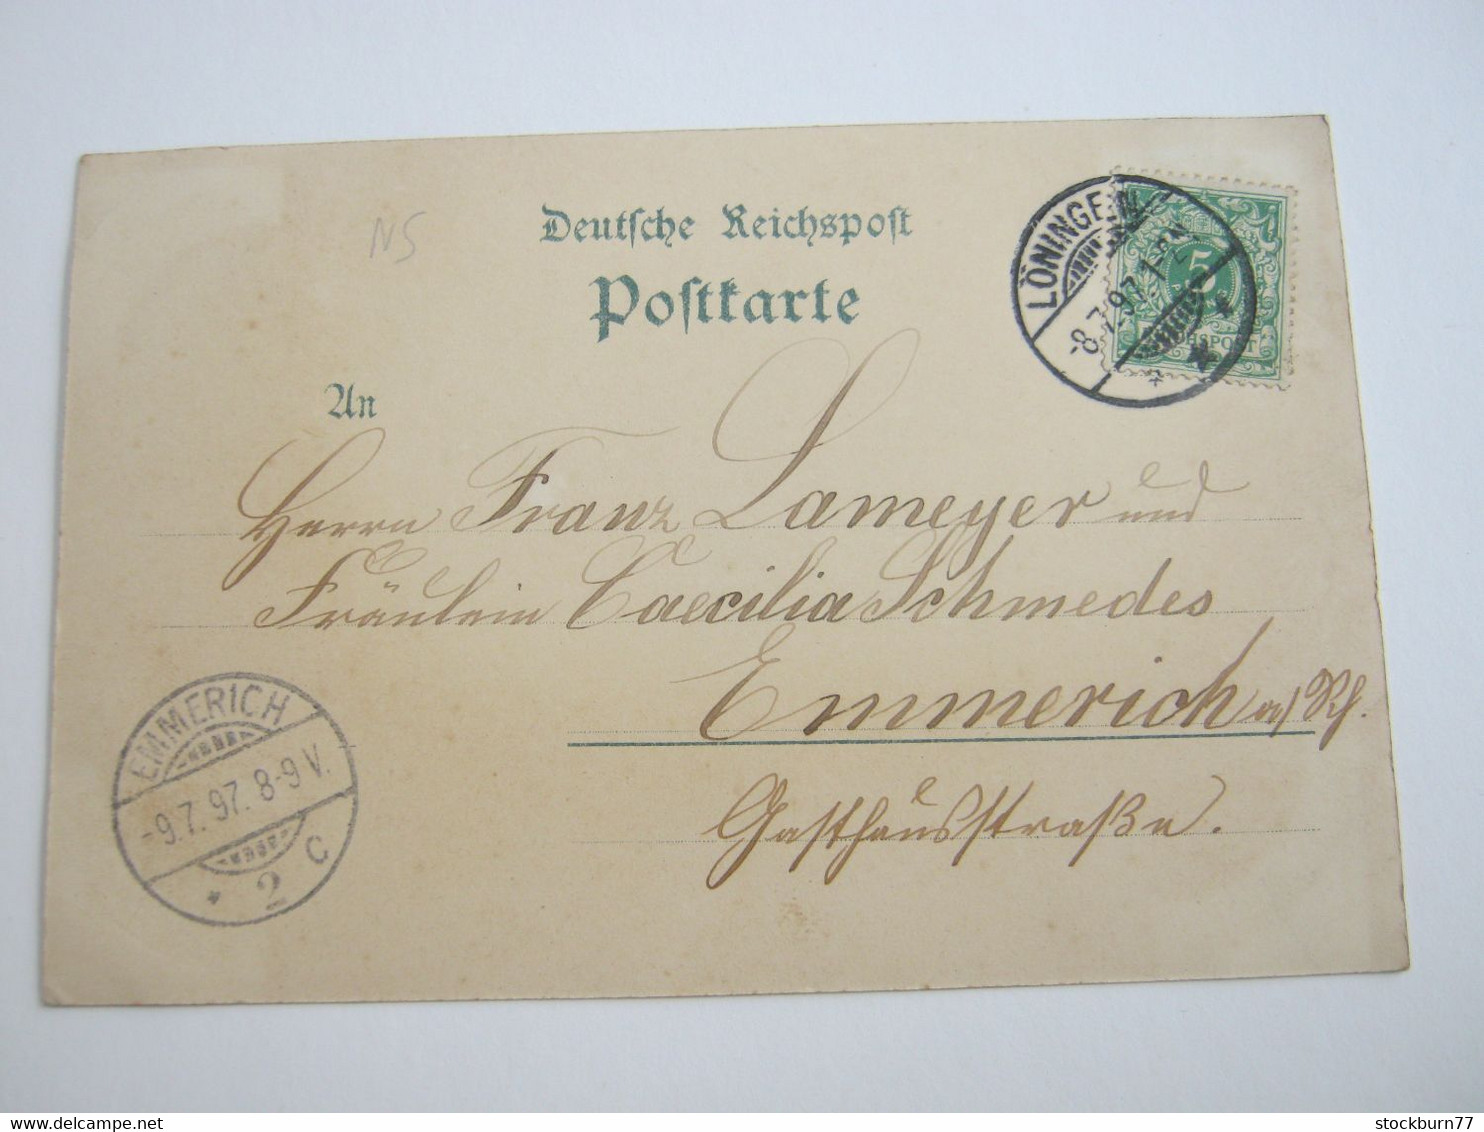 NS
Deutsche Reichspost
Postkarte
LÖNINGEN
-8.7.97.
5
REICHSPOST
An
Herrn Franz Lameyer und
Fräulein Caecilia Schmedes
Emmerich a/Rh.
Gasthausstraße.
EMMERICH
-9.7.97.8-9 V.
* 2 c
stockburn77